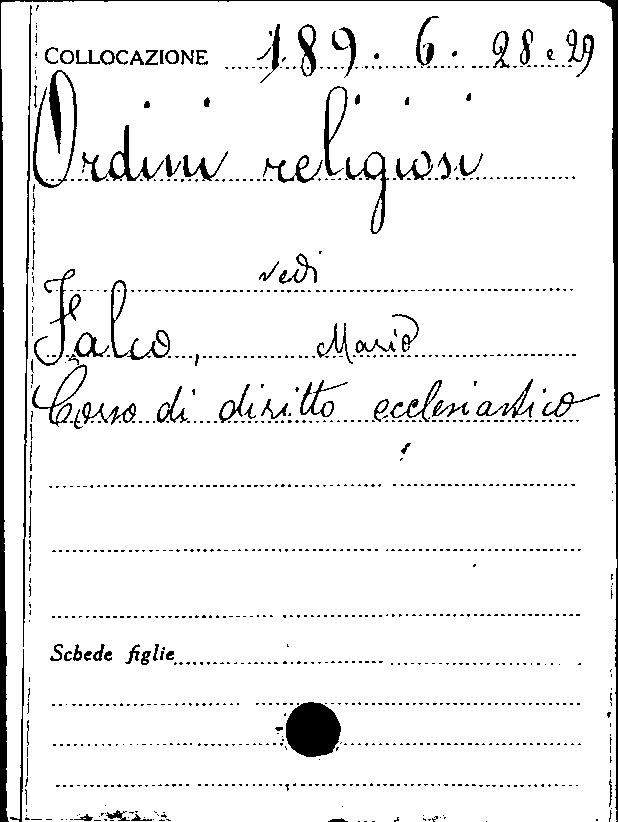 COLLOCAZIONE 189. 6. 28 e 29
Ordini religiosi
vedi
Falco, Mario
Corso di diritto ecclesiastico
Schede figlie